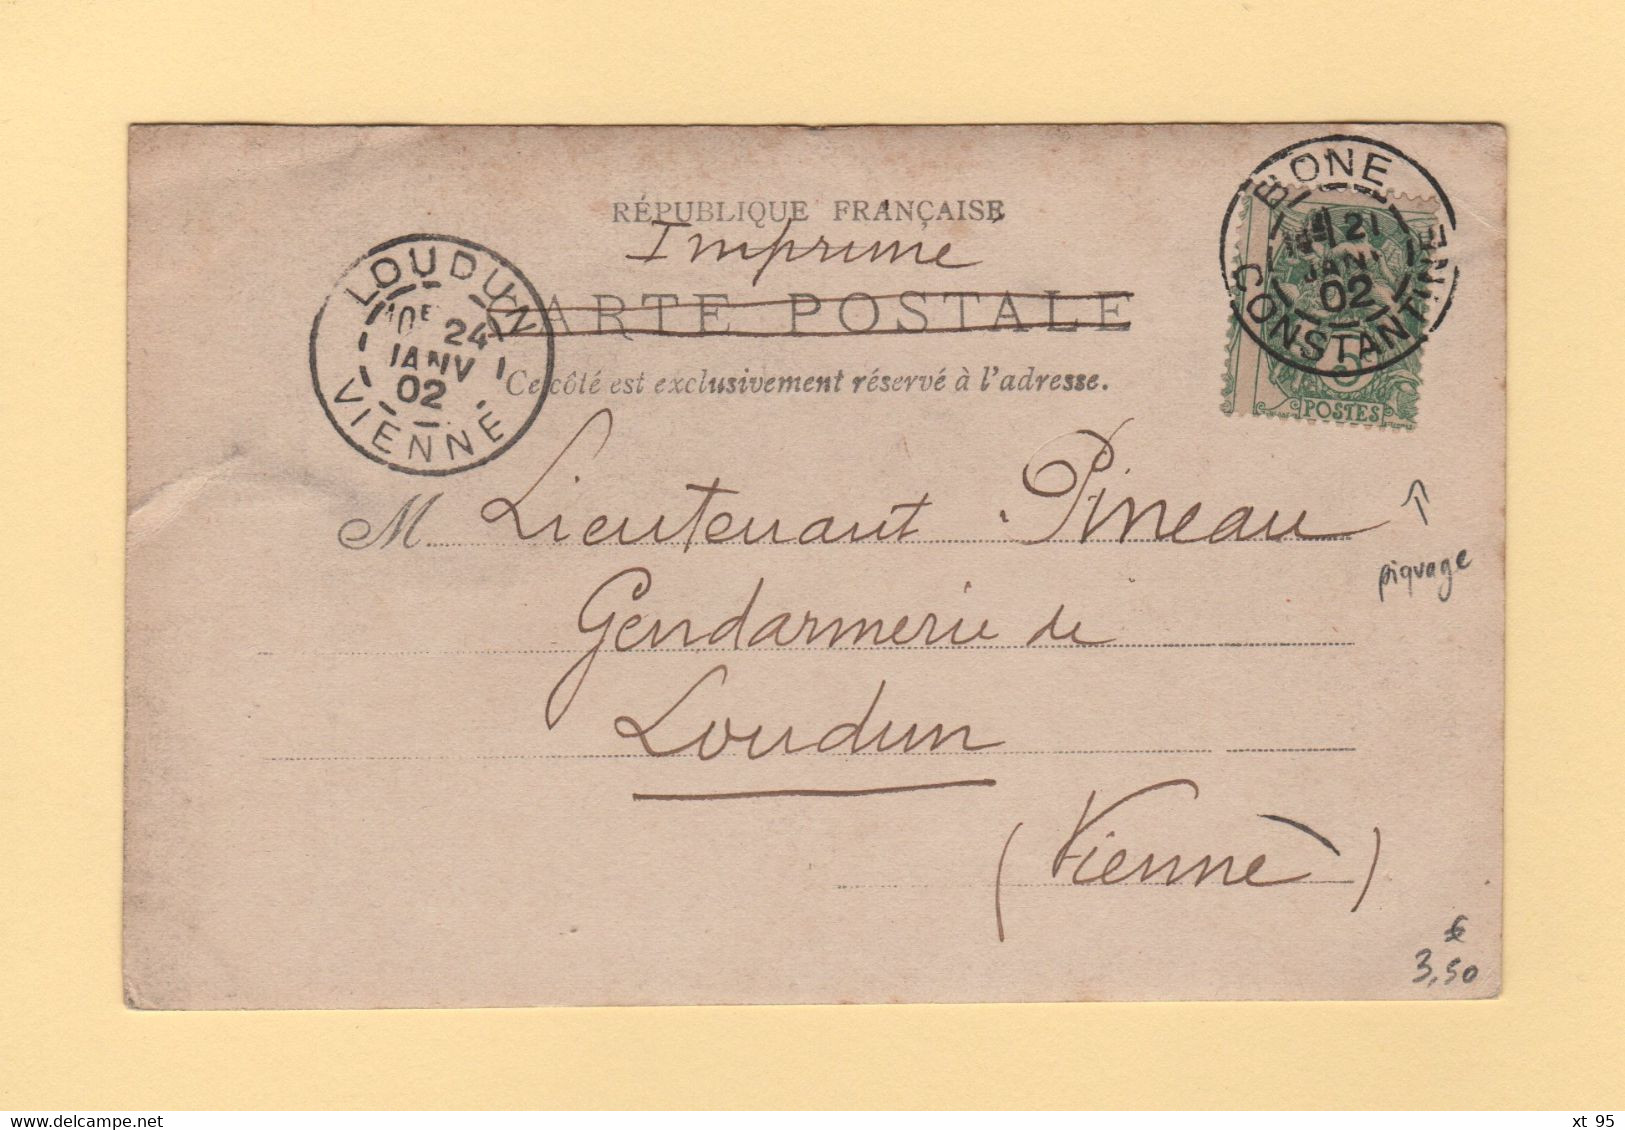 RÉPUBLIQUE FRANÇAISE
Imprimé
CARTE POSTALE
Ce côté est exclusivement réservé à l'adresse.
LOUDUN
10E 24
JANV
02
VIENNE
BONE
21
JANV
02
CONSTANTINE
5
POSTES
M. Lieutenant Pineau
Gendarmerie de
Loudun
(Vienne)
piquage
3,50
xt 95